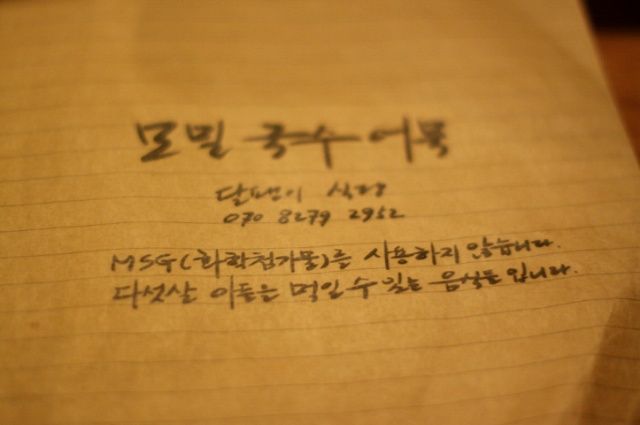 모밀 국수 어묵
달팽이 식당
070 8279 2952
MSG(화학첨가물)를 사용하지 않습니다.
다섯살 아들은 먹일 수 있는 음식들 입니다.